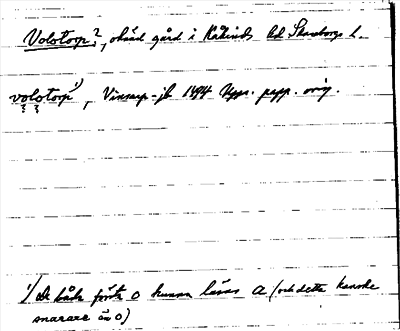 Volotorp?, okänd gård i Kåkinds hd Skaraborgs l.
volotorp¹⁾, Vinsarp-jb 1494 Upps. papp. orig.
1/ de båda första o kunna läsas a (och detta kanske
snarare än o)